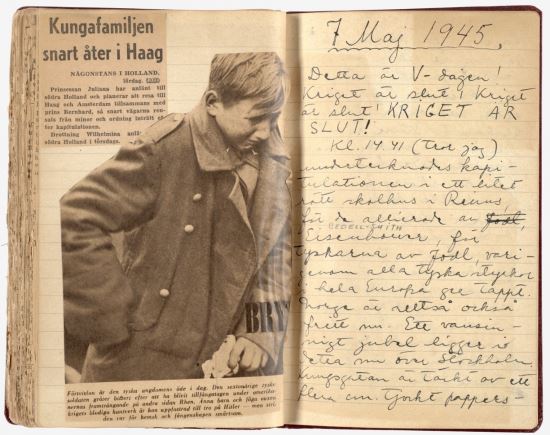 Kungafamiljen
snart åter i Haag
NÅGONSTANS I HOLLAND,
lördag.
Prinsessan Juliana har anlänt till
södra Holland och planerar att resa till
Haag och Amsterdam tillsammans med
prins Bernhard, så snart vägarna ren-
sats från minor och ordning inträtt ef-
ter kapitulationen.
Drottning Wilhelmina anlände till
södra Holland i torsdags.
BRI
Förtvivlan är den tyska ungdomens öde i dag. Den sextonårige tyske
soldaten gråter bittert efter att ha blivit tillfångatagen under amerika-
nernas framträngande på andra sidan Rhen. Ännu barn och föga vuxen
krigets blodiga hantverk är han uppfostrad till tro på Hitler — men
den var för hemsk och fångenskapen smärtsam.
7 Maj 1945.
Detta är V-dagen!
Kriget är slut! Kriget
är slut! KRIGET ÄR
SLUT!
Kl. 14.41 (tror jag)
undertecknades kapi-
tulationen i ett litet
rött skolhus i Reims,
för de allierade av Jodl,
BEDELL-SMITH
Eisenhower, för
tyskarna av Jodl, vari-
genom alla tyska styrkor
i hela Europa ge tappt.
Norge är alltså också
fritt nu. Ett vansin-
nigt jubel ligger i
detta nu över Stockholm
Kungsgatan är täckt av ett
flera cm. tjockt pappers-